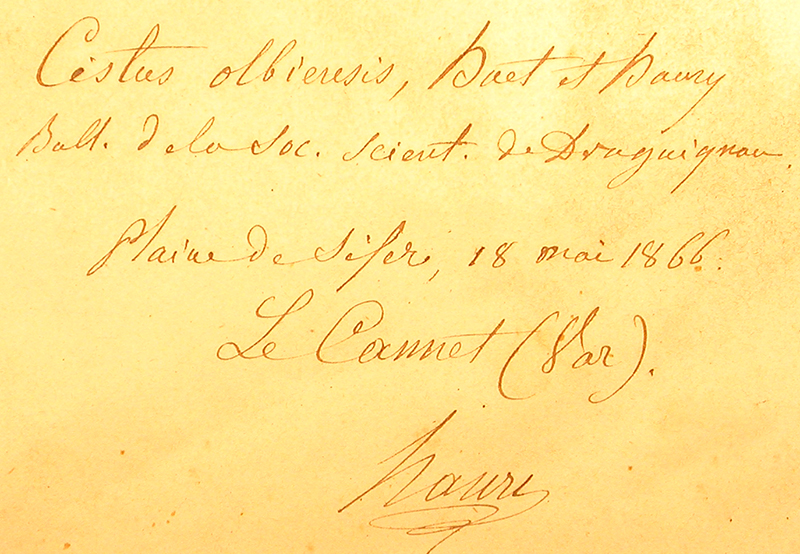 Cistus olbiensis, Huet et Hanry
Bull. de la Soc. scient. de Draguignan.
Plaine de Sifer, 18 mai 1866.
Le Cannet (Var).
Hanry